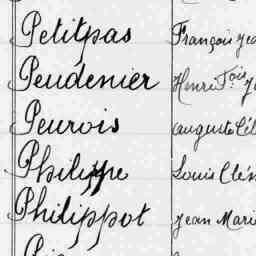 Petitpas François Jea
Peudenier Henri F.ois J
Peurois auguste Cél
Philippe Louis Clém
Philippot Jean Mari